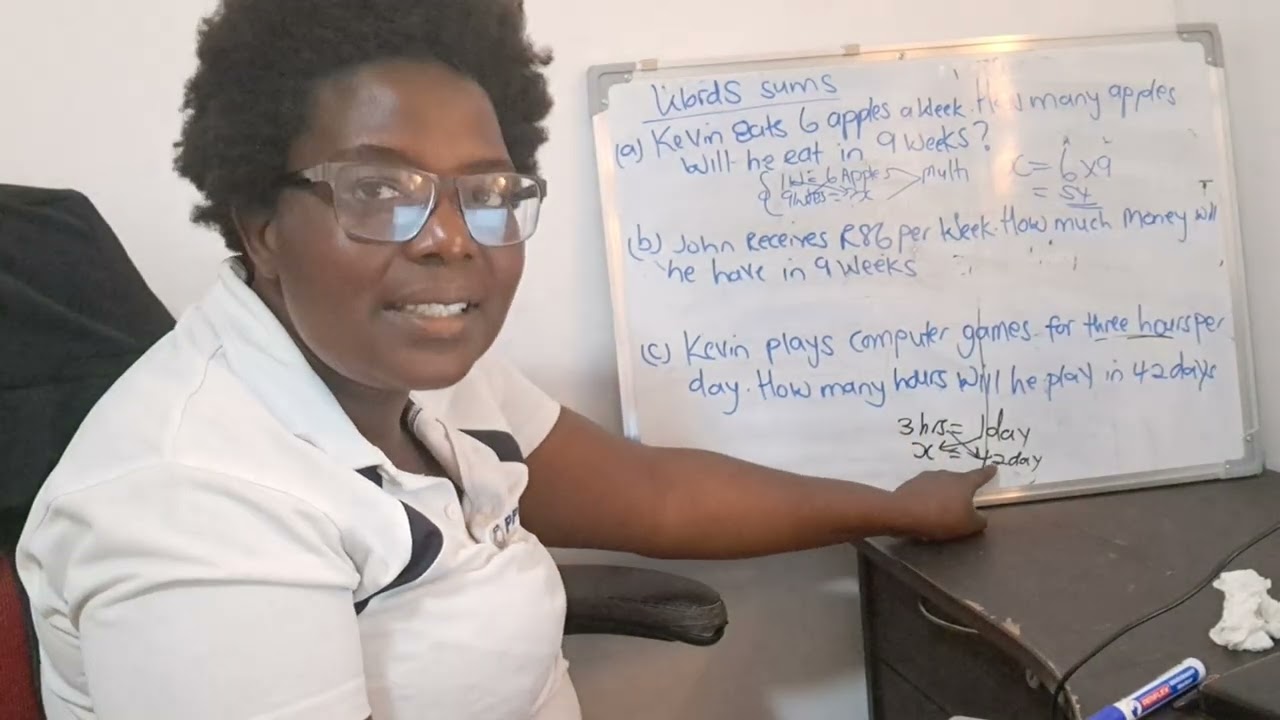 Words sums
(a) Kevin eats 6 apples a week. How many apples
will he eat in 9 weeks?
1w = 6 Apples
= x
Multi
C = 6 x 9
= 54
(b) John Receives R86 per week. How much money will
he have in 9 weeks
(c) Kevin plays computer games for three hours per
day. How many hours will he play in 42 days
3 hrs = 1 day
x = 42 day